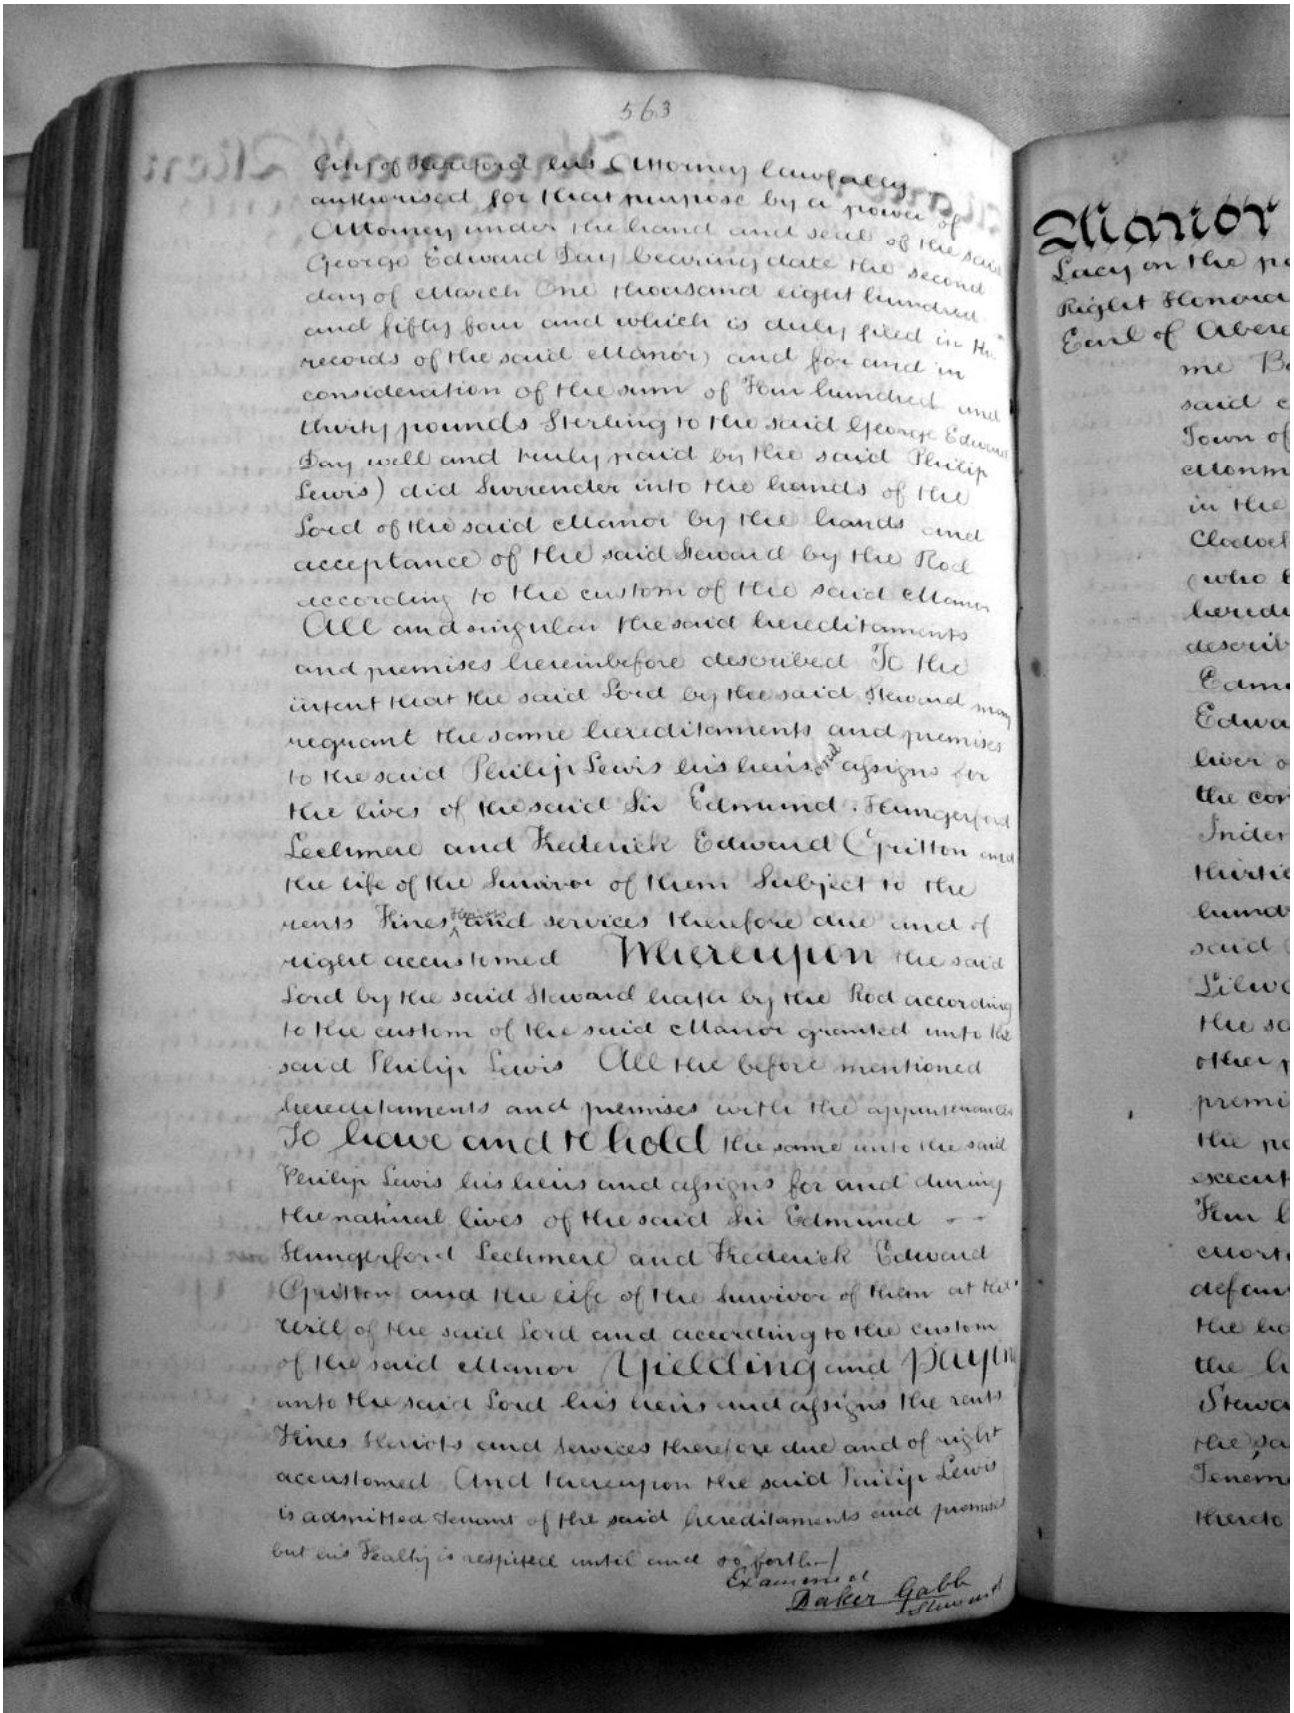 563
City of Hereford his Attorney lawfully
authorised for that purpose by a power of
Attorney under the hand and seal of the said
George Edward Day bearing date the second
day of March One thousand eight hundred
and fifty four and which is duly filed in the
records of the said Manor) and for and in
consideration of the sum of Four hundred and
thirty pounds Sterling to the said George Edward
Day well and truly paid by the said Philip
Lewis) did Surrender into the hands of the
Lord of the said Manor by the hands and
acceptance of the said Steward by the Rod
according to the custom of the said Manor
All and singular the said hereditaments
and premises hereinbefore described To the
intent that the said Lord by the said Steward may
regrant the same hereditaments and premises
to the said Philip Lewis his heirs and assigns for
the lives of the said Sir Edmund Hungerford
Lechmere and Frederick Edward Gritton and
the life of the Survivor of them Subject to the
rents Fines Heriots and services therefore due and of
right accustomed Whereupon the said
Lord by the said Steward hath by the Rod according
to the custom of the said Manor granted unto the
said Philip Lewis All the before mentioned
hereditaments and premises with the appurtenances
To have and to hold the same unto the said
Philip Lewis his heirs and assigns for and during
the natural lives of the said Sir Edmund - -
Hungerford Lechmere and Frederick Edward
Gritton and the life of the Survivor of them at the
Will of the said Lord and according to the custom
of the said Manor Yielding and Paying
unto the said Lord his heirs and assigns the rents
Fines Heriots and Services therefore due and of right
accustomed And thereupon the said Philip Lewis
is admitted tenant of the said hereditaments and premises
but his Fealty is respited until and so forth
Examined
Baker Gabb
Steward
Manor
Lacy on the
Right Honora
Earl of Aberg
me Ba
said
Town of
Monm
in the
Clodoc
(who
heredi
describ
Edmu
Edwa
lives o
the con
Inden
thirtie
hund
said
Lilw
the sa
other p
premi
the pa
execut
Four h
Mort
defau
the ha
the h
Stewa
the sa
Tenem
thereto